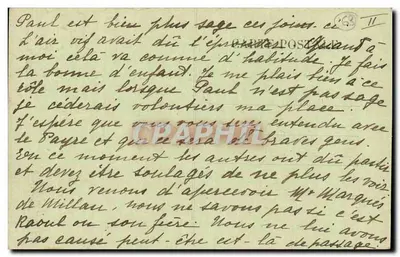 Paul est bien plus sage ces jours. ce
L'air vif avait dû l'éprouver. Quant à
CARTE POSTALE
moi celà va comme d'habitude. Je fais
la bonne d'enfant. Je me plais bien à ce
rôle mais lorsque Paul n'est pas sage
je céderais volontiers ma place.
J'espère que vous vous entendu avec
le Payre et que ce sera de braves gens.
En ce moment les autres ont dû partir
et devez être soulagés de ne plus les voir
Nous venons d'apercevoir Mr Marquès
de Millau, nous ne savons pas si c'est
Raoul ou son frère. Nous ne lui avons
pas causé peut-être est-là de passage
II
CPAPHIL